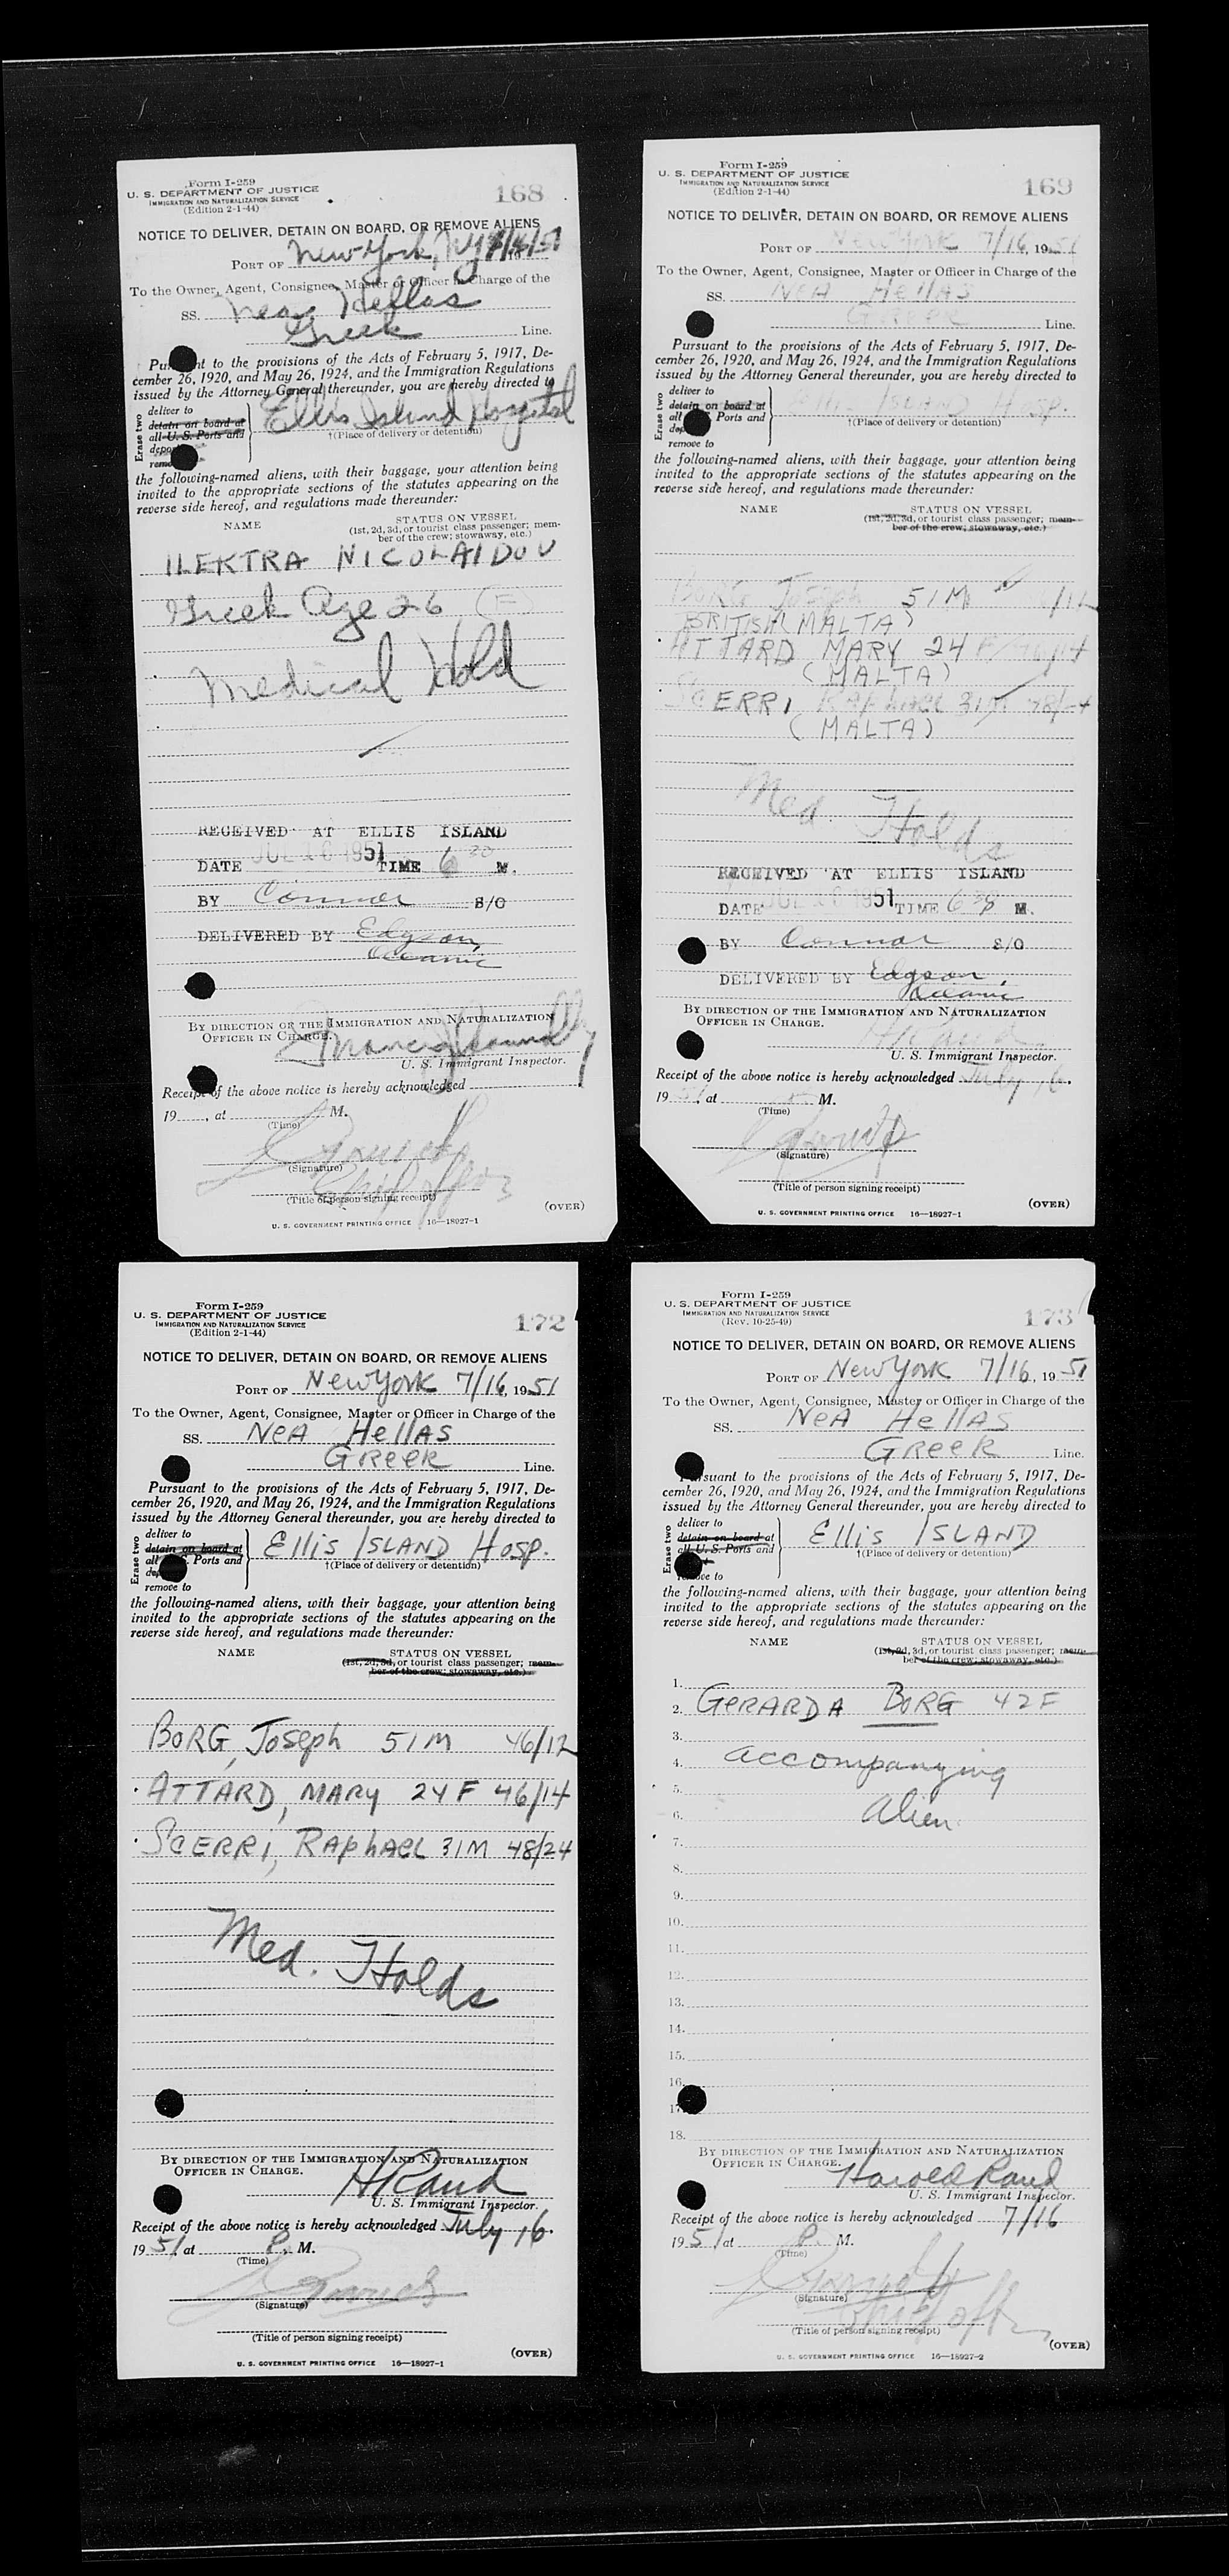 Form I-259
U. S. DEPARTMENT OF JUSTICE
IMMIGRATION AND NATURALIZATION SERVICE
(Edition 2-1-44)
168
NOTICE TO DELIVER, DETAIN ON BOARD, OR REMOVE ALIENS
PORT OF New York, NY
To the Owner, Agent, Consignee, Master or Officer in Charge of the
SS. Nea Hellas
Greek Line.
Pursuant to the provisions of the Acts of February 5, 1917, De-
cember 26, 1920, and May 26, 1924, and the Immigration Regulations
issued by the Attorney General thereunder, you are hereby directed to
Erase two
deliver to
detain on board at
all U. S. Ports and
deport
remove to
Ellis Island Hospital
†(Place of delivery or detention)
the following-named aliens, with their baggage, your attention being
invited to the appropriate sections of the statutes appearing on the
reverse side hereof, and regulations made thereunder:
NAME STATUS ON VESSEL
(1st, 2d, 3d, or tourist class passenger; mem-
ber of the crew; stowaway, etc.)
ILEKTRA NICOLAIDOU
Greek Age 26 (F)
Medical Hold
RECEIVED AT ELLIS ISLAND
DATE JUL 16 1951 TIME 6 30 M.
BY Connor S/O
DELIVERED BY Edgson,
Oceanic
BY DIRECTION OF THE IMMIGRATION AND NATURALIZATION
OFFICER IN CHARGE.
U. S. Immigrant Inspector.
Receipt of the above notice is hereby acknowledged
19 , at M.
(Time)
(Signature)
Chief Officer
(Title of person signing receipt)
(OVER)
U. S. GOVERNMENT PRINTING OFFICE 16—18927-1
Form I-259
U. S. DEPARTMENT OF JUSTICE
IMMIGRATION AND NATURALIZATION SERVICE
(Edition 2-1-44)
169
NOTICE TO DELIVER, DETAIN ON BOARD, OR REMOVE ALIENS
PORT OF New York 7/16, 1951
To the Owner, Agent, Consignee, Master or Officer in Charge of the
SS. NeA HellAS
GReeK Line.
Pursuant to the provisions of the Acts of February 5, 1917, De-
cember 26, 1920, and May 26, 1924, and the Immigration Regulations
issued by the Attorney General thereunder, you are hereby directed to
Erase two
deliver to
detain on board at
all U. S. Ports and
deport
remove to
Ellis ISLAND Hosp.
†(Place of delivery or detention)
the following-named aliens, with their baggage, your attention being
invited to the appropriate sections of the statutes appearing on the
reverse side hereof, and regulations made thereunder:
NAME STATUS ON VESSEL
(1st, 2d, 3d, or tourist class passenger; mem-
ber of the crew; stowaway, etc.)
BORG Joseph 51 M 46/12
(BRITISH MALTA)
ATTARD MARY 24 F 46/14
(MALTA)
SCERRI RAphael 31M 48/24
(MALTA)
Med. Holds
RECEIVED AT ELLIS ISLAND
DATE JUL 16 1951 TIME 6 30 P M.
BY Connor S/O
DELIVERED BY Edgson,
Oceanic
BY DIRECTION OF THE IMMIGRATION AND NATURALIZATION
OFFICER IN CHARGE.
H Rand
U. S. Immigrant Inspector.
Receipt of the above notice is hereby acknowledged July 16.
1951, at M.
(Time)
(Signature)
(Title of person signing receipt)
(OVER)
U. S. GOVERNMENT PRINTING OFFICE 16—18927-1
Form I-259
U. S. DEPARTMENT OF JUSTICE
IMMIGRATION AND NATURALIZATION SERVICE
(Edition 2-1-44)
172
NOTICE TO DELIVER, DETAIN ON BOARD, OR REMOVE ALIENS
PORT OF New York 7/16, 1951
To the Owner, Agent, Consignee, Master or Officer in Charge of the
SS. NeA HellAS
GReeK Line.
Pursuant to the provisions of the Acts of February 5, 1917, De-
cember 26, 1920, and May 26, 1924, and the Immigration Regulations
issued by the Attorney General thereunder, you are hereby directed to
Erase two
deliver to
detain on board at
all U. S. Ports and
deport
remove to
Ellis ISLAND Hosp.
†(Place of delivery or detention)
the following-named aliens, with their baggage, your attention being
invited to the appropriate sections of the statutes appearing on the
reverse side hereof, and regulations made thereunder:
NAME STATUS ON VESSEL
(1st, 2d, 3d, or tourist class passenger; mem-
ber of the crew; stowaway, etc.)
BORG, Joseph 51M 46/12
ATTARD, MARY 24F 46/14
SCERRI, RAphAel 31M 48/24
Med. Holds
BY DIRECTION OF THE IMMIGRATION AND NATURALIZATION
OFFICER IN CHARGE.
H Rand
U. S. Immigrant Inspector.
Receipt of the above notice is hereby acknowledged July 16.
1951 at P. M.
(Time)
(Signature)
(Title of person signing receipt)
(OVER)
U. S. GOVERNMENT PRINTING OFFICE 16—18927-1
Form I-259
U. S. DEPARTMENT OF JUSTICE
IMMIGRATION AND NATURALIZATION SERVICE
(Rev. 10-25-49)
173
NOTICE TO DELIVER, DETAIN ON BOARD, OR REMOVE ALIENS
PORT OF New York 7/16, 1951
To the Owner, Agent, Consignee, Master or Officer in Charge of the
SS. NeA HellAS
GReeK Line.
Pursuant to the provisions of the Acts of February 5, 1917, De-
cember 26, 1920, and May 26, 1924, and the Immigration Regulations
issued by the Attorney General thereunder, you are hereby directed to
Erase two
deliver to
detain on board at
all U. S. Ports and
remove to
Ellis ISLAND
†(Place of delivery or detention)
the following-named aliens, with their baggage, your attention being
invited to the appropriate sections of the statutes appearing on the
reverse side hereof, and regulations made thereunder:
NAME STATUS ON VESSEL
(1st, 2d, 3d, or tourist class passenger; mem-
ber of the crew; stowaway, etc.)
1.
2. GeRARDA BORG 42F
3.
4. accompanying
5.
6. alien
7.
8.
9.
10.
11.
12.
13.
14.
15.
16.
17.
18.
BY DIRECTION OF THE IMMIGRATION AND NATURALIZATION
OFFICER IN CHARGE.
Harold Rand
U. S. Immigrant Inspector.
Receipt of the above notice is hereby acknowledged 7/16
1951 at P. M.
(Time)
(Signature)
Chief Off
(Title of person signing receipt)
(OVER)
U. S. GOVERNMENT PRINTING OFFICE 16—18927-2